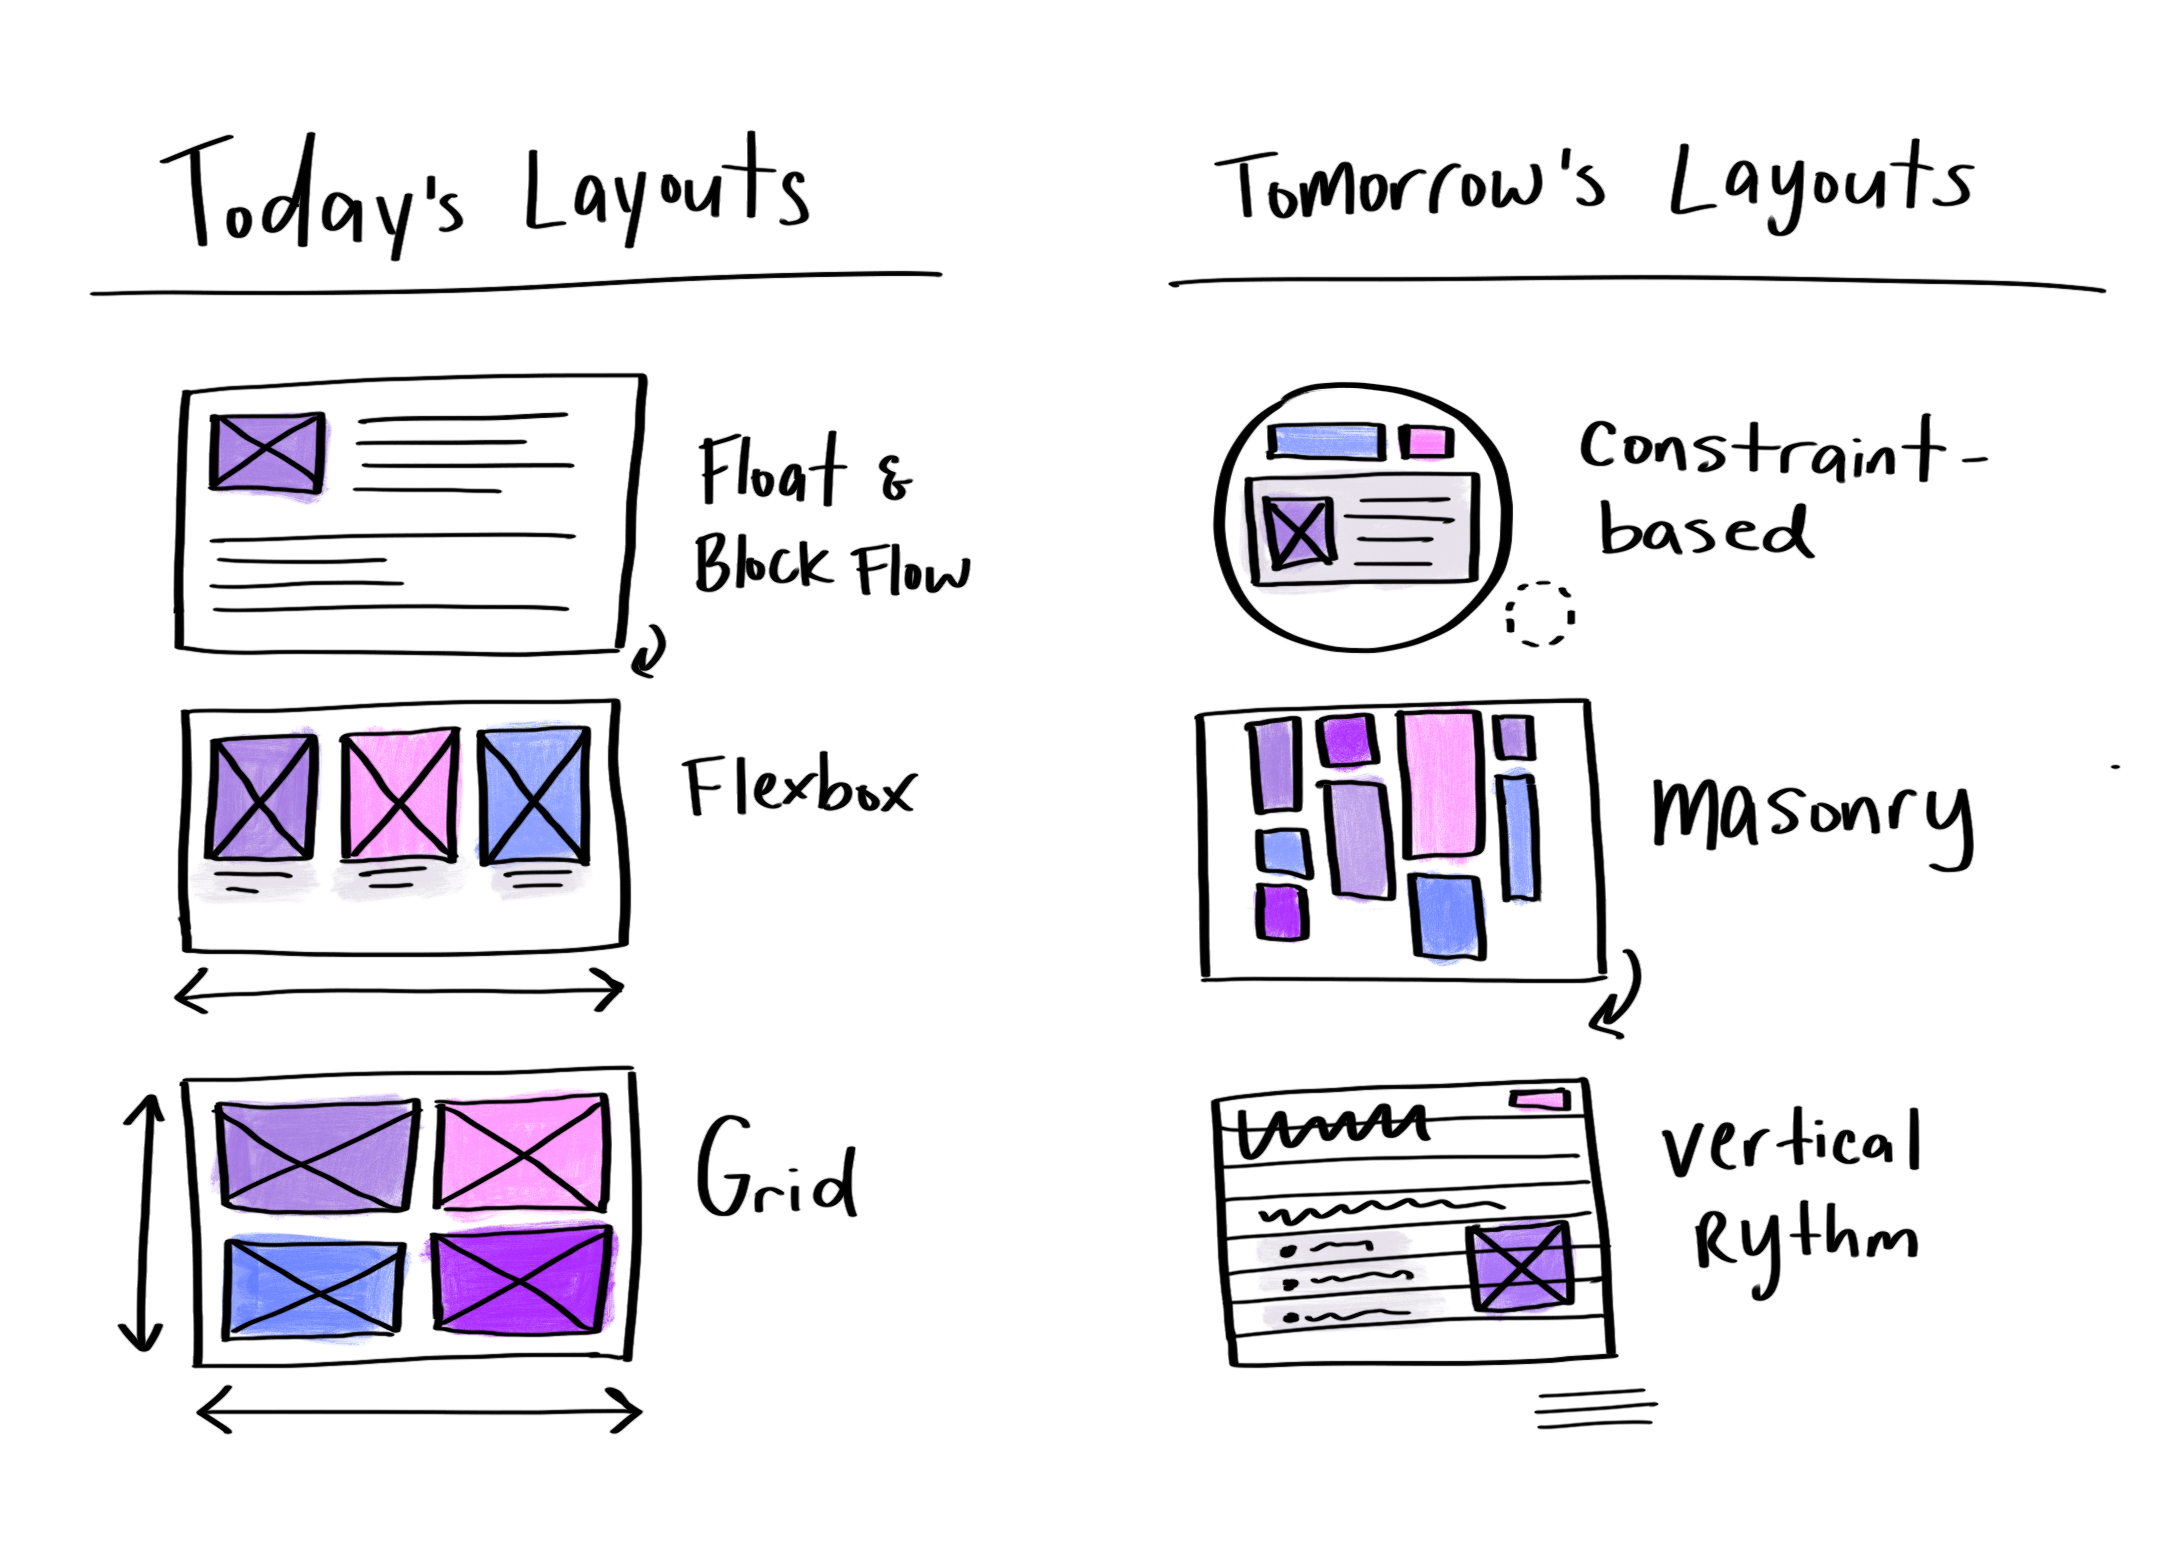 Today's Layouts
Float &
Block Flow
Flexbox
Grid
Tomorrow's Layouts
Constraint-
based
Masonry
Vertical
Rythm